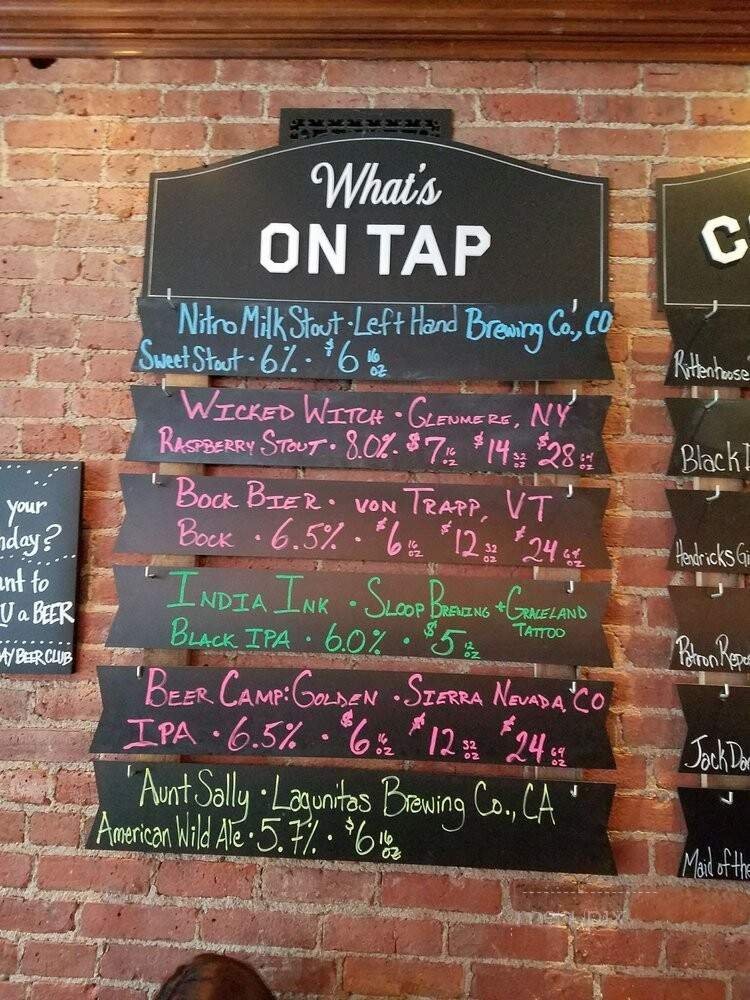 What's
ON TAP
Nitro Milk Stout · Left Hand Brewing Co., CO
Sweet Stout · 6% · $6 16 oz
WICKED WITCH · GLENMERE, NY
RASPBERRY STOUT · 8.0% · $7 16 oz $14 32 oz $28 64 oz
BOCK BIER · VON TRAPP, VT
BOCK · 6.5% · $6 16 oz $12 32 oz $24 64 oz
INDIA INK · SLOOP BREWING + GRACELAND
TATTOO
BLACK IPA · 6.0% · $5 12 oz
BEER CAMP: GOLDEN · SIERRA NEVADA, CO
IPA · 6.5% · $6 16 oz $12 32 oz $24 64 oz
Aunt Sally · Lagunitas Brewing Co., CA
American Wild Ale · 5.7% · $6 16 oz
your
nday?
nt to
U a BEER
AY BEER CLUB
C
Rittenhouse
Black
Hendricks Gi
Patron Repo
Jack Dan
Maid of the